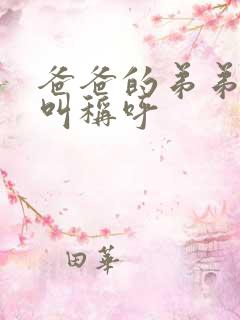 爸爸的弟弟
叫稱呼
田華